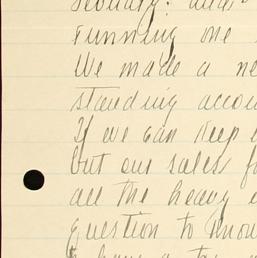 running one
We made a ne
standing accou
If we can keep
but our sales fo
all the heavy
question to know